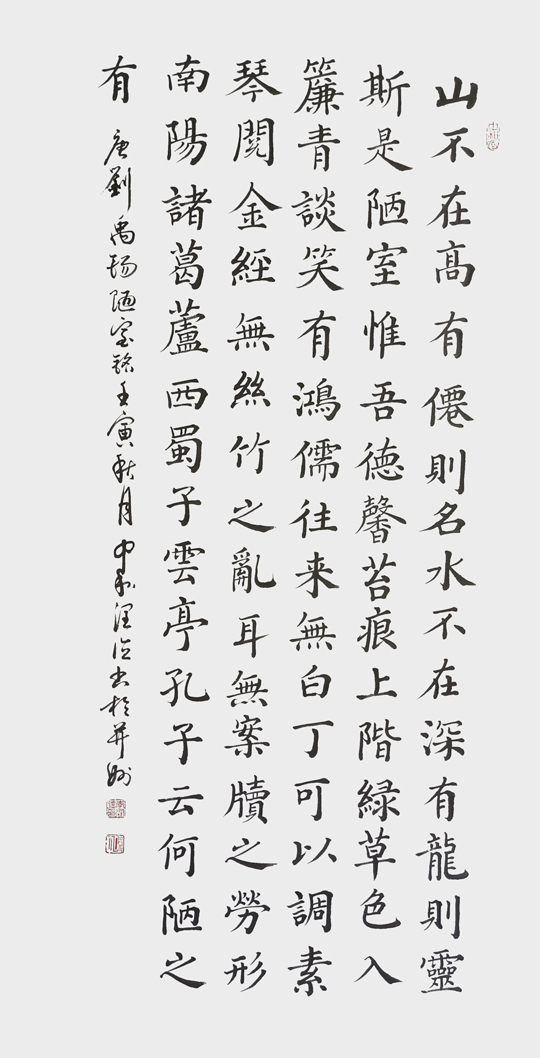 山不在高有僊則名水不在深有龍則靈
斯是陋室惟吾德馨苔痕上階緑草色入
簾青談笑有鴻儒往来無白丁可以調素
琴閲金經無絲竹之亂耳無案牘之勞形
南陽諸葛蘆西蜀子雲亭孔子云何陋之
有 唐劉禹锡陋室銘壬寅秋月中书於并州